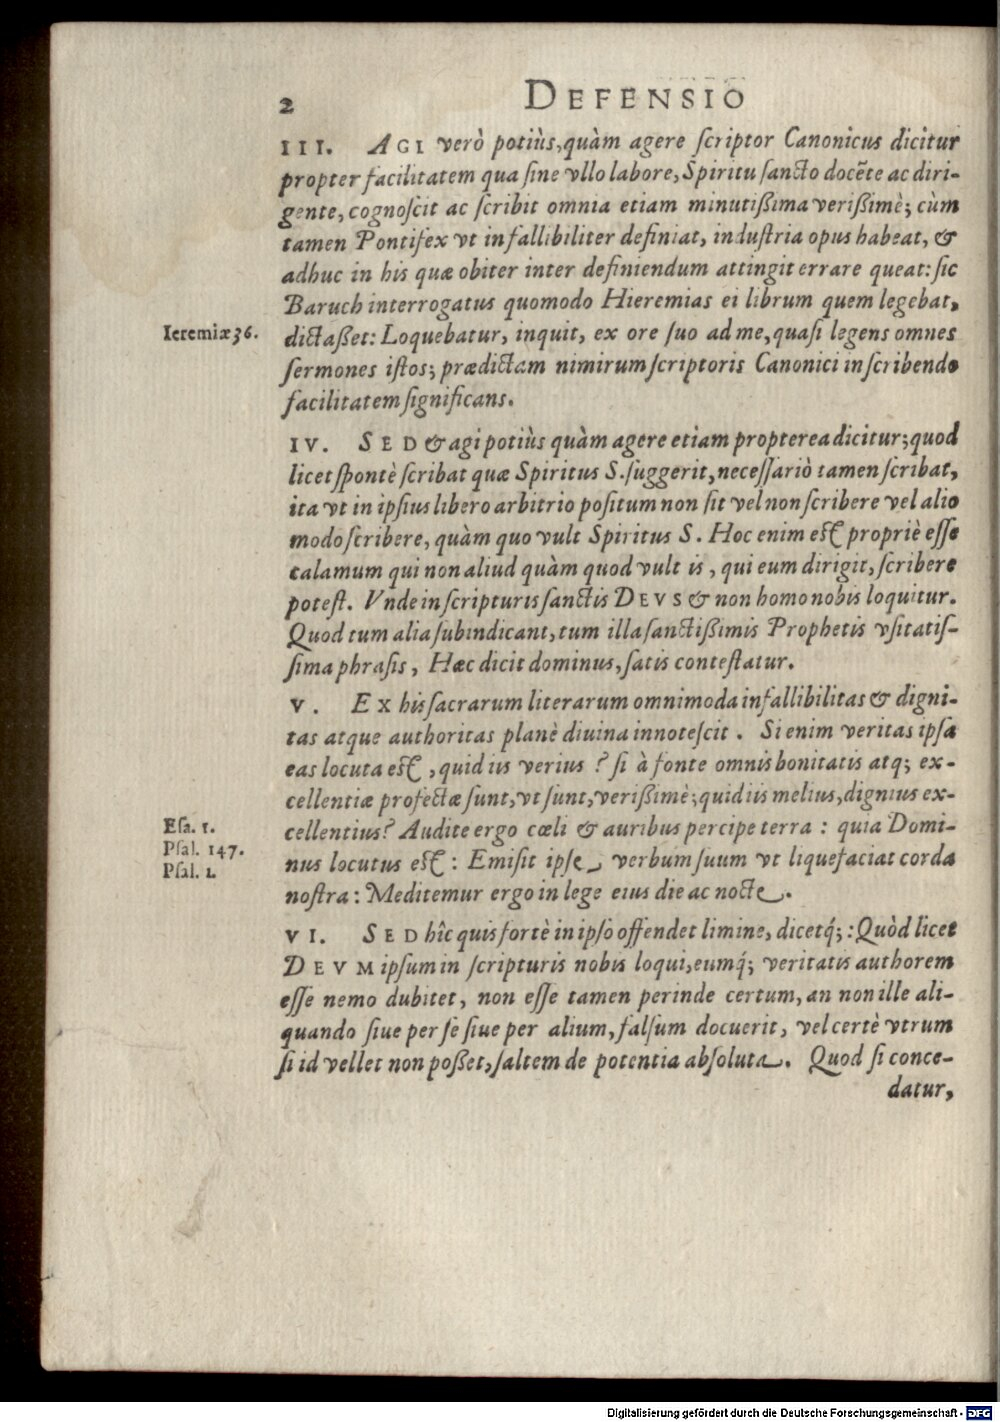 2 DEFENSIO
III. AGI verò potiùs, quàm agere ſcriptor Canonicus dicitur
propter facilitatem qua ſine vllo labore, Spiritu ſancto docẽte ac diri-
gente, cognoſcit ac ſcribit omnia etiam minutißima verißimè; cùm
tamen Pontifex vt infallibiliter definiat, induſtria opus habeat, &
adhuc in his quæ obiter inter definiendum attingit errare queat: ſic
Baruch interrogatus quomodo Hieremias ei librum quem legebat,
Ieremiæ 36.
dictaßet: Loquebatur, inquit, ex ore ſuo ad me, quaſi legens omnes
ſermones iſtos; prædictam nimirum ſcriptoris Canonici in ſcribendo
facilitatem ſignificans.
IV. SED & agi potiùs quàm agere etiam propterea dicitur; quod
licet ſpontè ſcribat quæ Spiritus S. ſuggerit, neceſſariò tamen ſcribat,
ita vt in ipſius libero arbitrio poſitum non ſit vel non ſcribere vel alio
modo ſcribere, quàm quo vult Spiritus S. Hoc enim eſt propriè eſſe
calamum qui non aliud quàm quod vult is, qui eum dirigit, ſcribere
poteſt. Vnde in ſcripturis ſanctis DEVS & non homo nobis loquitur.
Quod tum alia ſubindicant, tum illa ſanctißimis Prophetis vſitatiſ-
ſima phraſis, Hæc dicit dominus, ſatis conteſtatur.
V. EX his ſacrarum literarum omnimoda infallibilitas & digni-
tas atque authoritas planè diuina innoteſcit. Si enim veritas ipſa
eas locuta eſt, quid iis verius? ſi à fonte omnis bonitatis atq; ex-
cellentiæ profectæ ſunt, vt ſunt, verißimè; quid iis melius, dignius ex-
Eſa. 1.
cellentius? Audite ergo cœli & auribus percipe terra: quia Domi-
Pſal. 147.
nus locutus eſt: Emiſit ipſe verbum ſuum vt liquefaciat corda
Pſal. 1.
noſtra: Meditemur ergo in lege eius die ac nocte.
VI. SED hîc quis fortè in ipſo offendet limine, dicetq́;: Quòd licet
DEVM ipſum in ſcripturis nobis loqui, eumq́; veritatis authorem
eſſe nemo dubitet, non eſſe tamen perinde certum, an non ille ali-
quando ſiue per ſe ſiue per alium, falſum docuerit, vel certè vtrum
ſi id vellet non poßet, ſaltem de potentia abſoluta. Quod ſi conce-
datur,
Digitalisierung gefördert durch die Deutsche Forschungsgemeinschaft - DFG